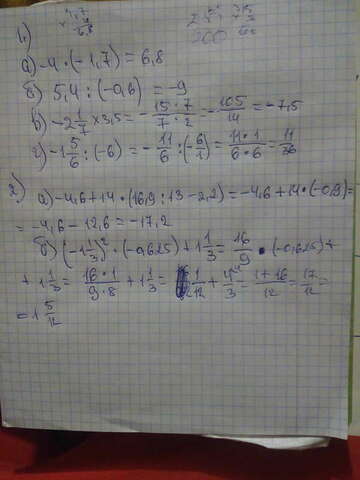 1)
а) -4 · (-1,7) = 6,8
б) 5,4 : (-0,6) = -9
в) -2 1/7 × 3,5 = - 15 · 7 / 7 · 2 = - 105/14 = -7,5
г) -1 5/6 : (-6) = - 11/6 : (- 6/1) = 11 · 1 / 6 · 6 = 11/36
2) а) -4,6 + 14 · (16,9 : 13 - 2,2) = -4,6 + 14 · (-0,9) =
= -4,6 - 12,6 = -17,2
б) (-1 1/3)² · (-0,625) + 1 1/3 = 16/9 · (-0,625) +
+ 1 1/3 = 16 · 1 / 9 · 8 + 1 1/3 = 1/12 + 4/3 = 1 + 16 / 12 = 17/12 =
= 1 5/12